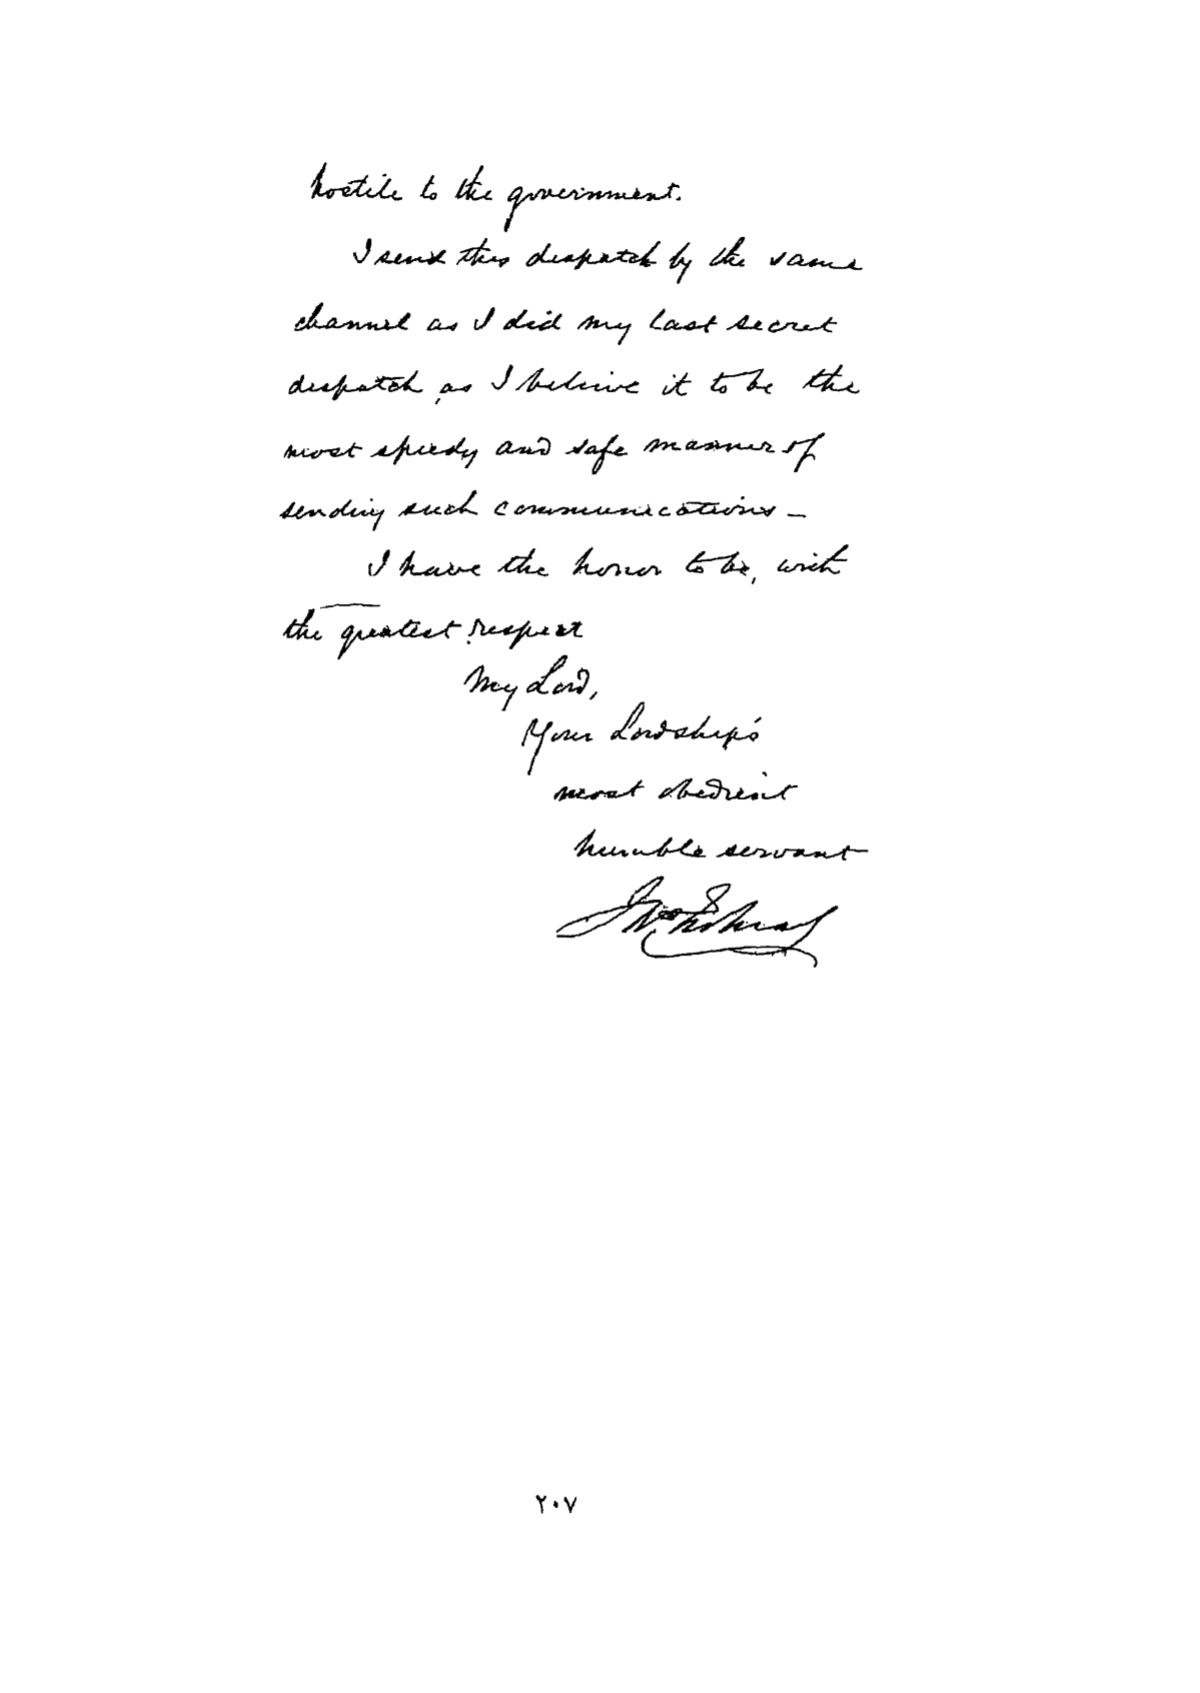 hostile to the government.
I send this despatch by the same
channel as I did my last secret
despatch, as I believe it to be the
most speedy and safe manner of
sending such communications –
I have the honor to be, with
the greatest respect
My Lord,
Your Lordship's
most obedient
humble servant
٢٠٧